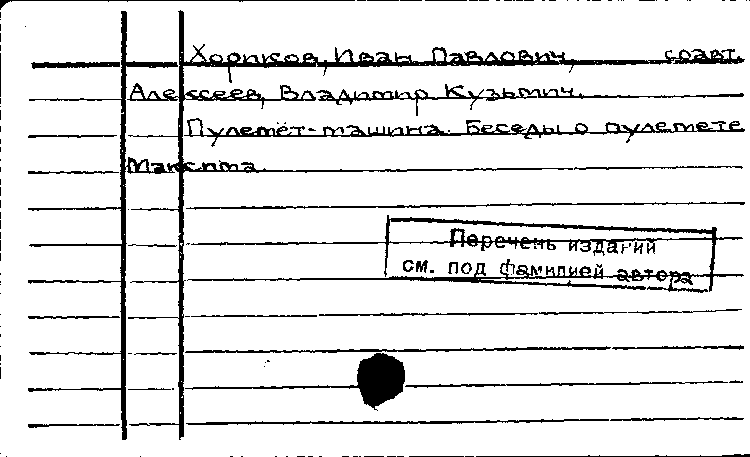 Хориков, Иван Павлович, соавт.
Алексеев, Владимир Кузьмич.
Пулемёт-машина. Беседы о пулемете
Максима.
Перечень изданий
см. под фамилией автора